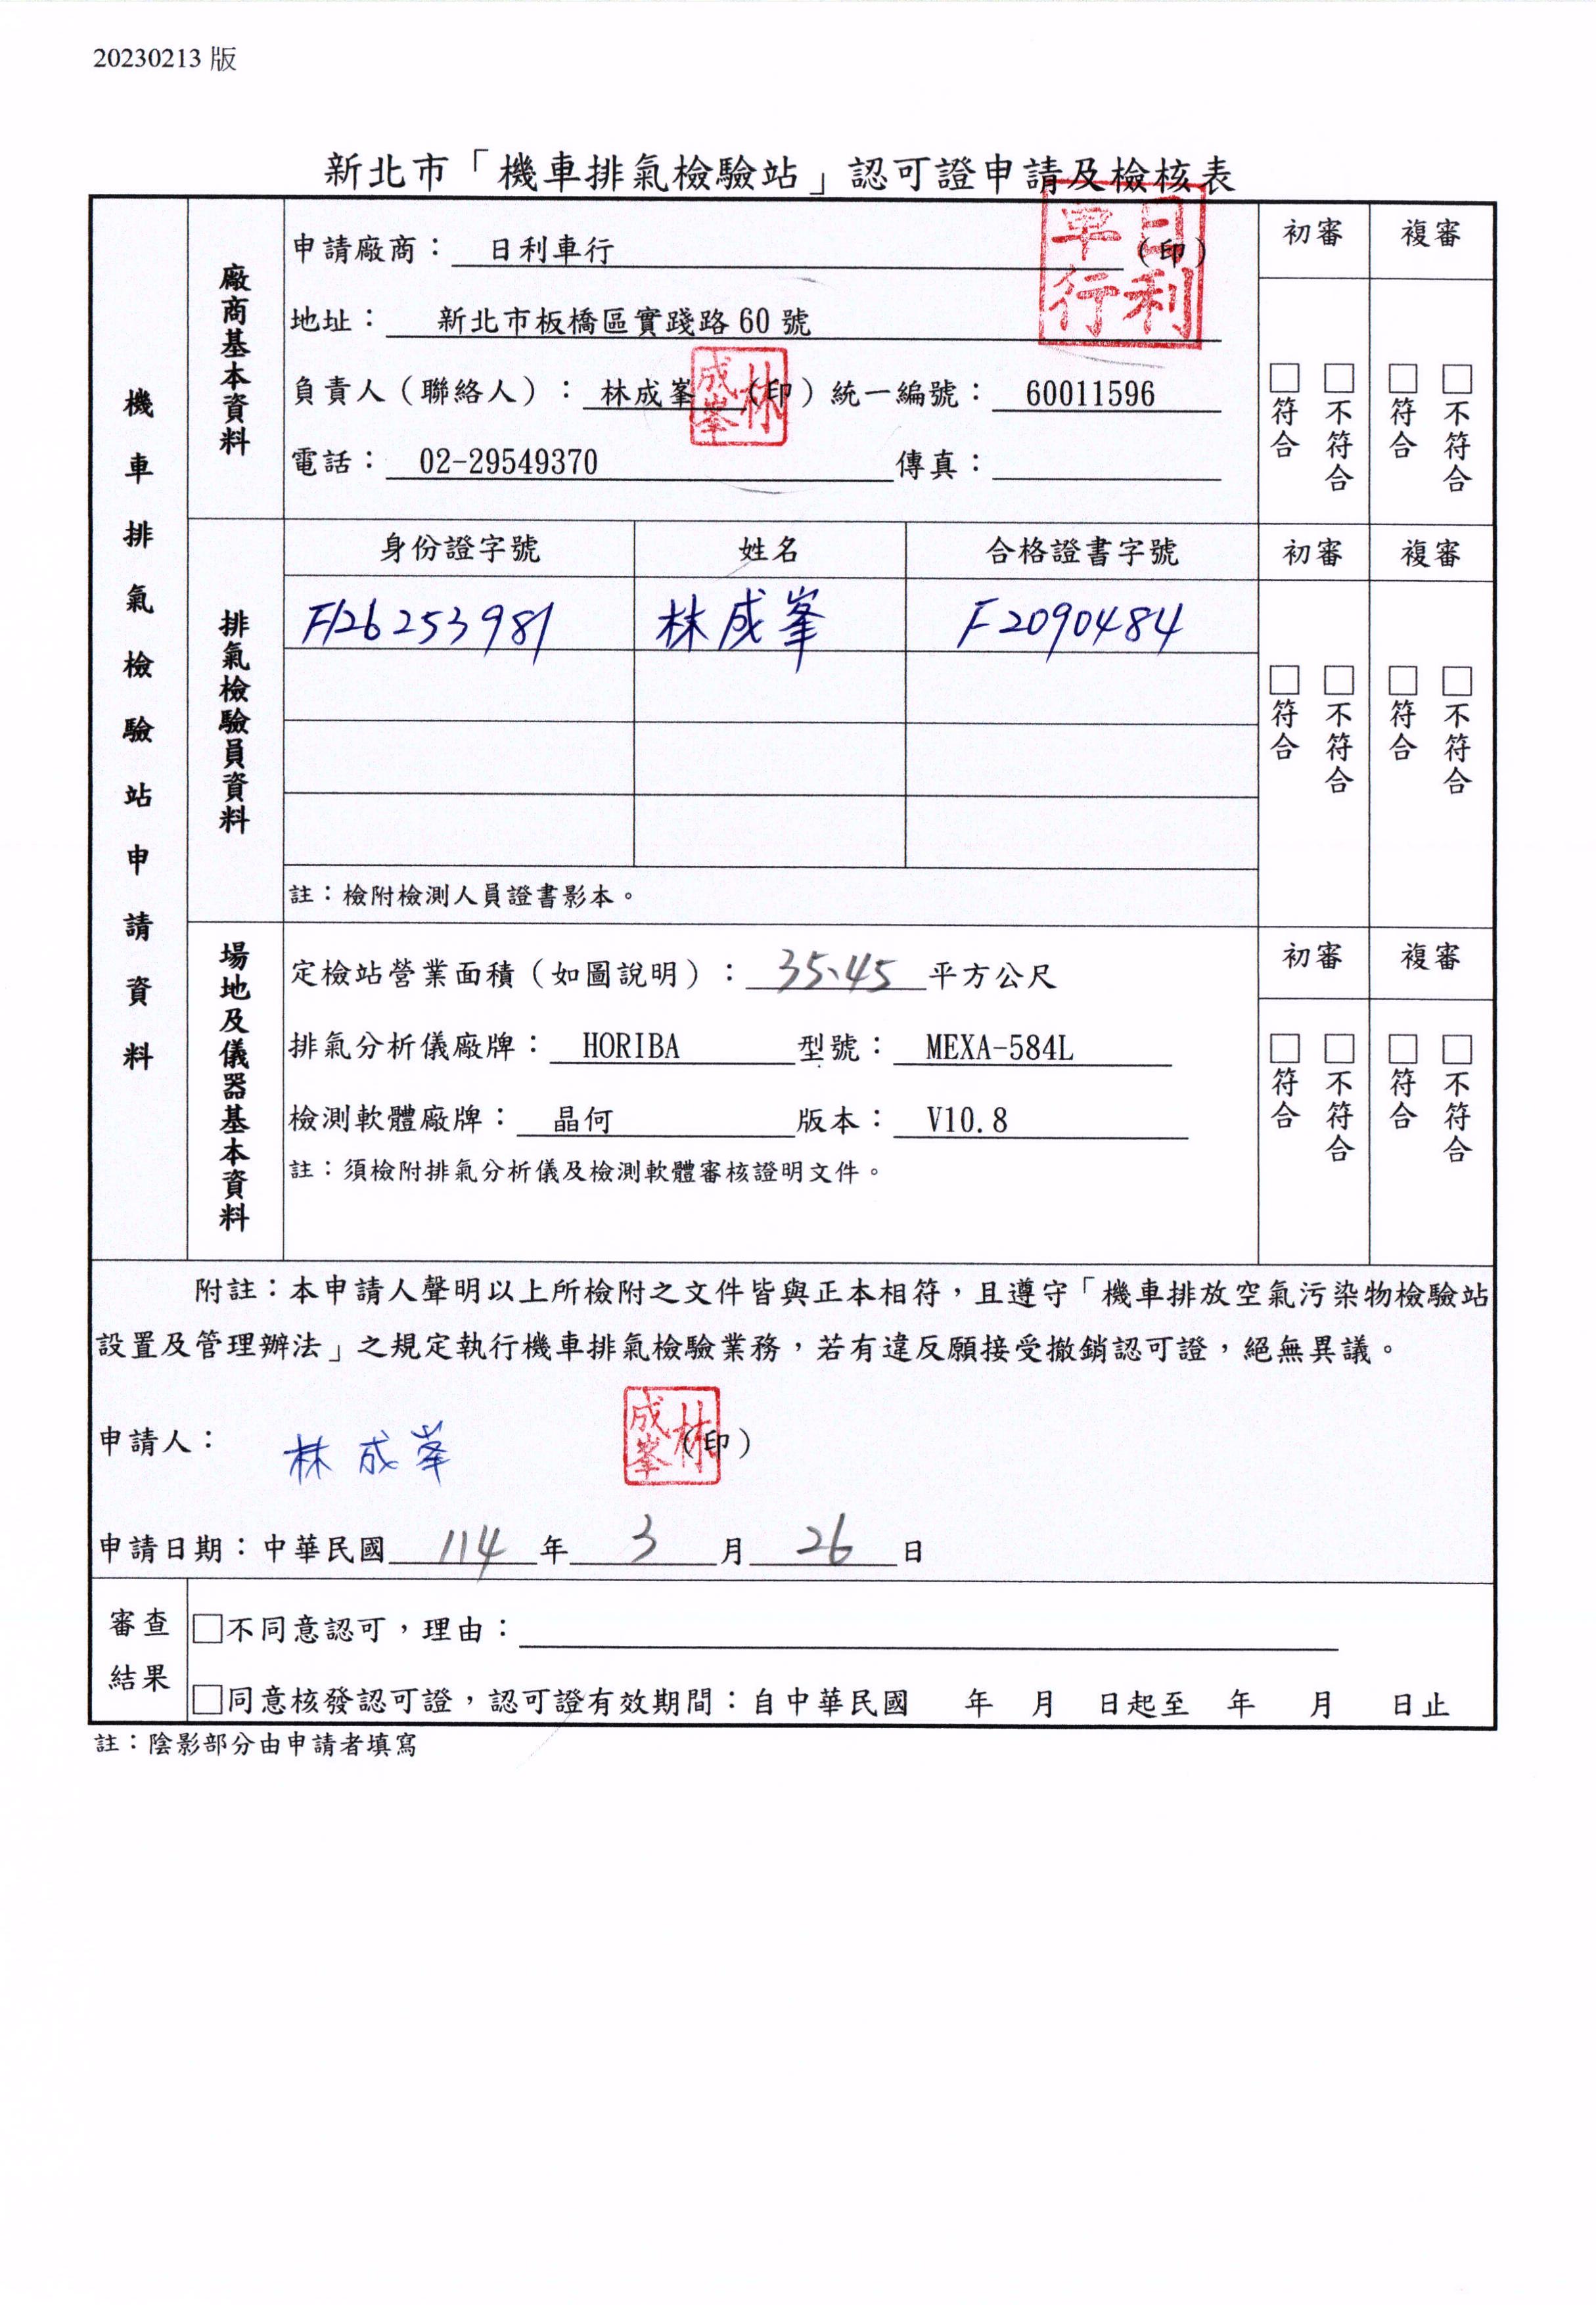 20230213 版
新北市「機車排氣檢驗站」認可證申請及檢核表
機車排氣檢驗站申請資料
廠商基本資料
申請廠商： 日利車行 （印）
日利車行
地址： 新北市板橋區實踐路 60 號
負責人（聯絡人）： 林成峯 （印）統一編號： 60011596
林成峯
電話： 02-29549370 傳真：
初審 複審
□符合 □不符合 □符合 □不符合
排氣檢驗員資料
身份證字號 姓名 合格證書字號
F126253981 林成峯 F2090484
註：檢附檢測人員證書影本。
初審 複審
□符合 □不符合 □符合 □不符合
場地及儀器基本資料
定檢站營業面積（如圖說明）： 35.45 平方公尺
排氣分析儀廠牌： HORIBA 型號： MEXA-584L
檢測軟體廠牌： 晶何 版本： V10.8
註：須檢附排氣分析儀及檢測軟體審核證明文件。
初審 複審
□符合 □不符合 □符合 □不符合
附註：本申請人聲明以上所檢附之文件皆與正本相符，且遵守「機車排放空氣污染物檢驗站
設置及管理辦法」之規定執行機車排氣檢驗業務，若有違反願接受撤銷認可證，絕無異議。
申請人： 林成峯 （印）
林成峯
申請日期：中華民國 114 年 3 月 26 日
審查結果
□不同意認可，理由：
□同意核發認可證，認可證有效期間：自中華民國 年 月 日起至 年 月 日止
註：陰影部分由申請者填寫